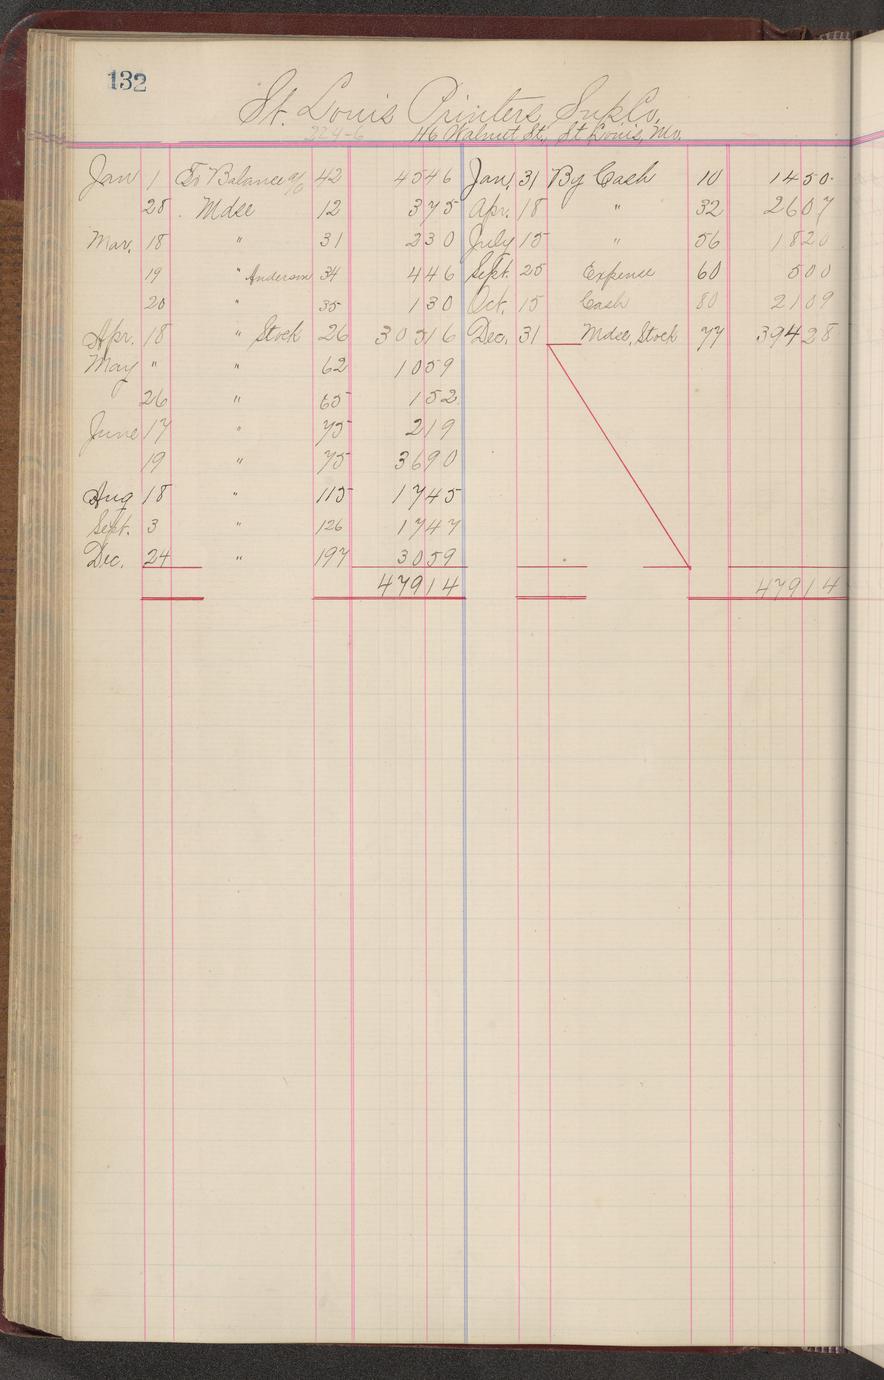 132
St. Louis Printers Sup Co.
224-6 116 Walnut St., St Louis, Mo.
Jan 1 To Balance a/c 42 4546 Jan. 31 By Cash 10 1450
28 . Mdse 12 375 Apr. 18 " 32 2607
Mar. 18 " 31 230 July 15 " 56 1820
19 " Anderson 34 446 Sept. 25 Expense 60 500
20 " 35 130 Oct. 15 Cash 80 2109
Apr. 18 " Stock 26 30516 Dec. 31 Mdse, Stock 77 39428
May " " 62 1059
26 " 65 152
June 17 " 75 219
19 " 75 3690
Aug 18 " 115 1745
Sept. 3 " 126 1747
Dec. 24 " 197 3059
47914 47914